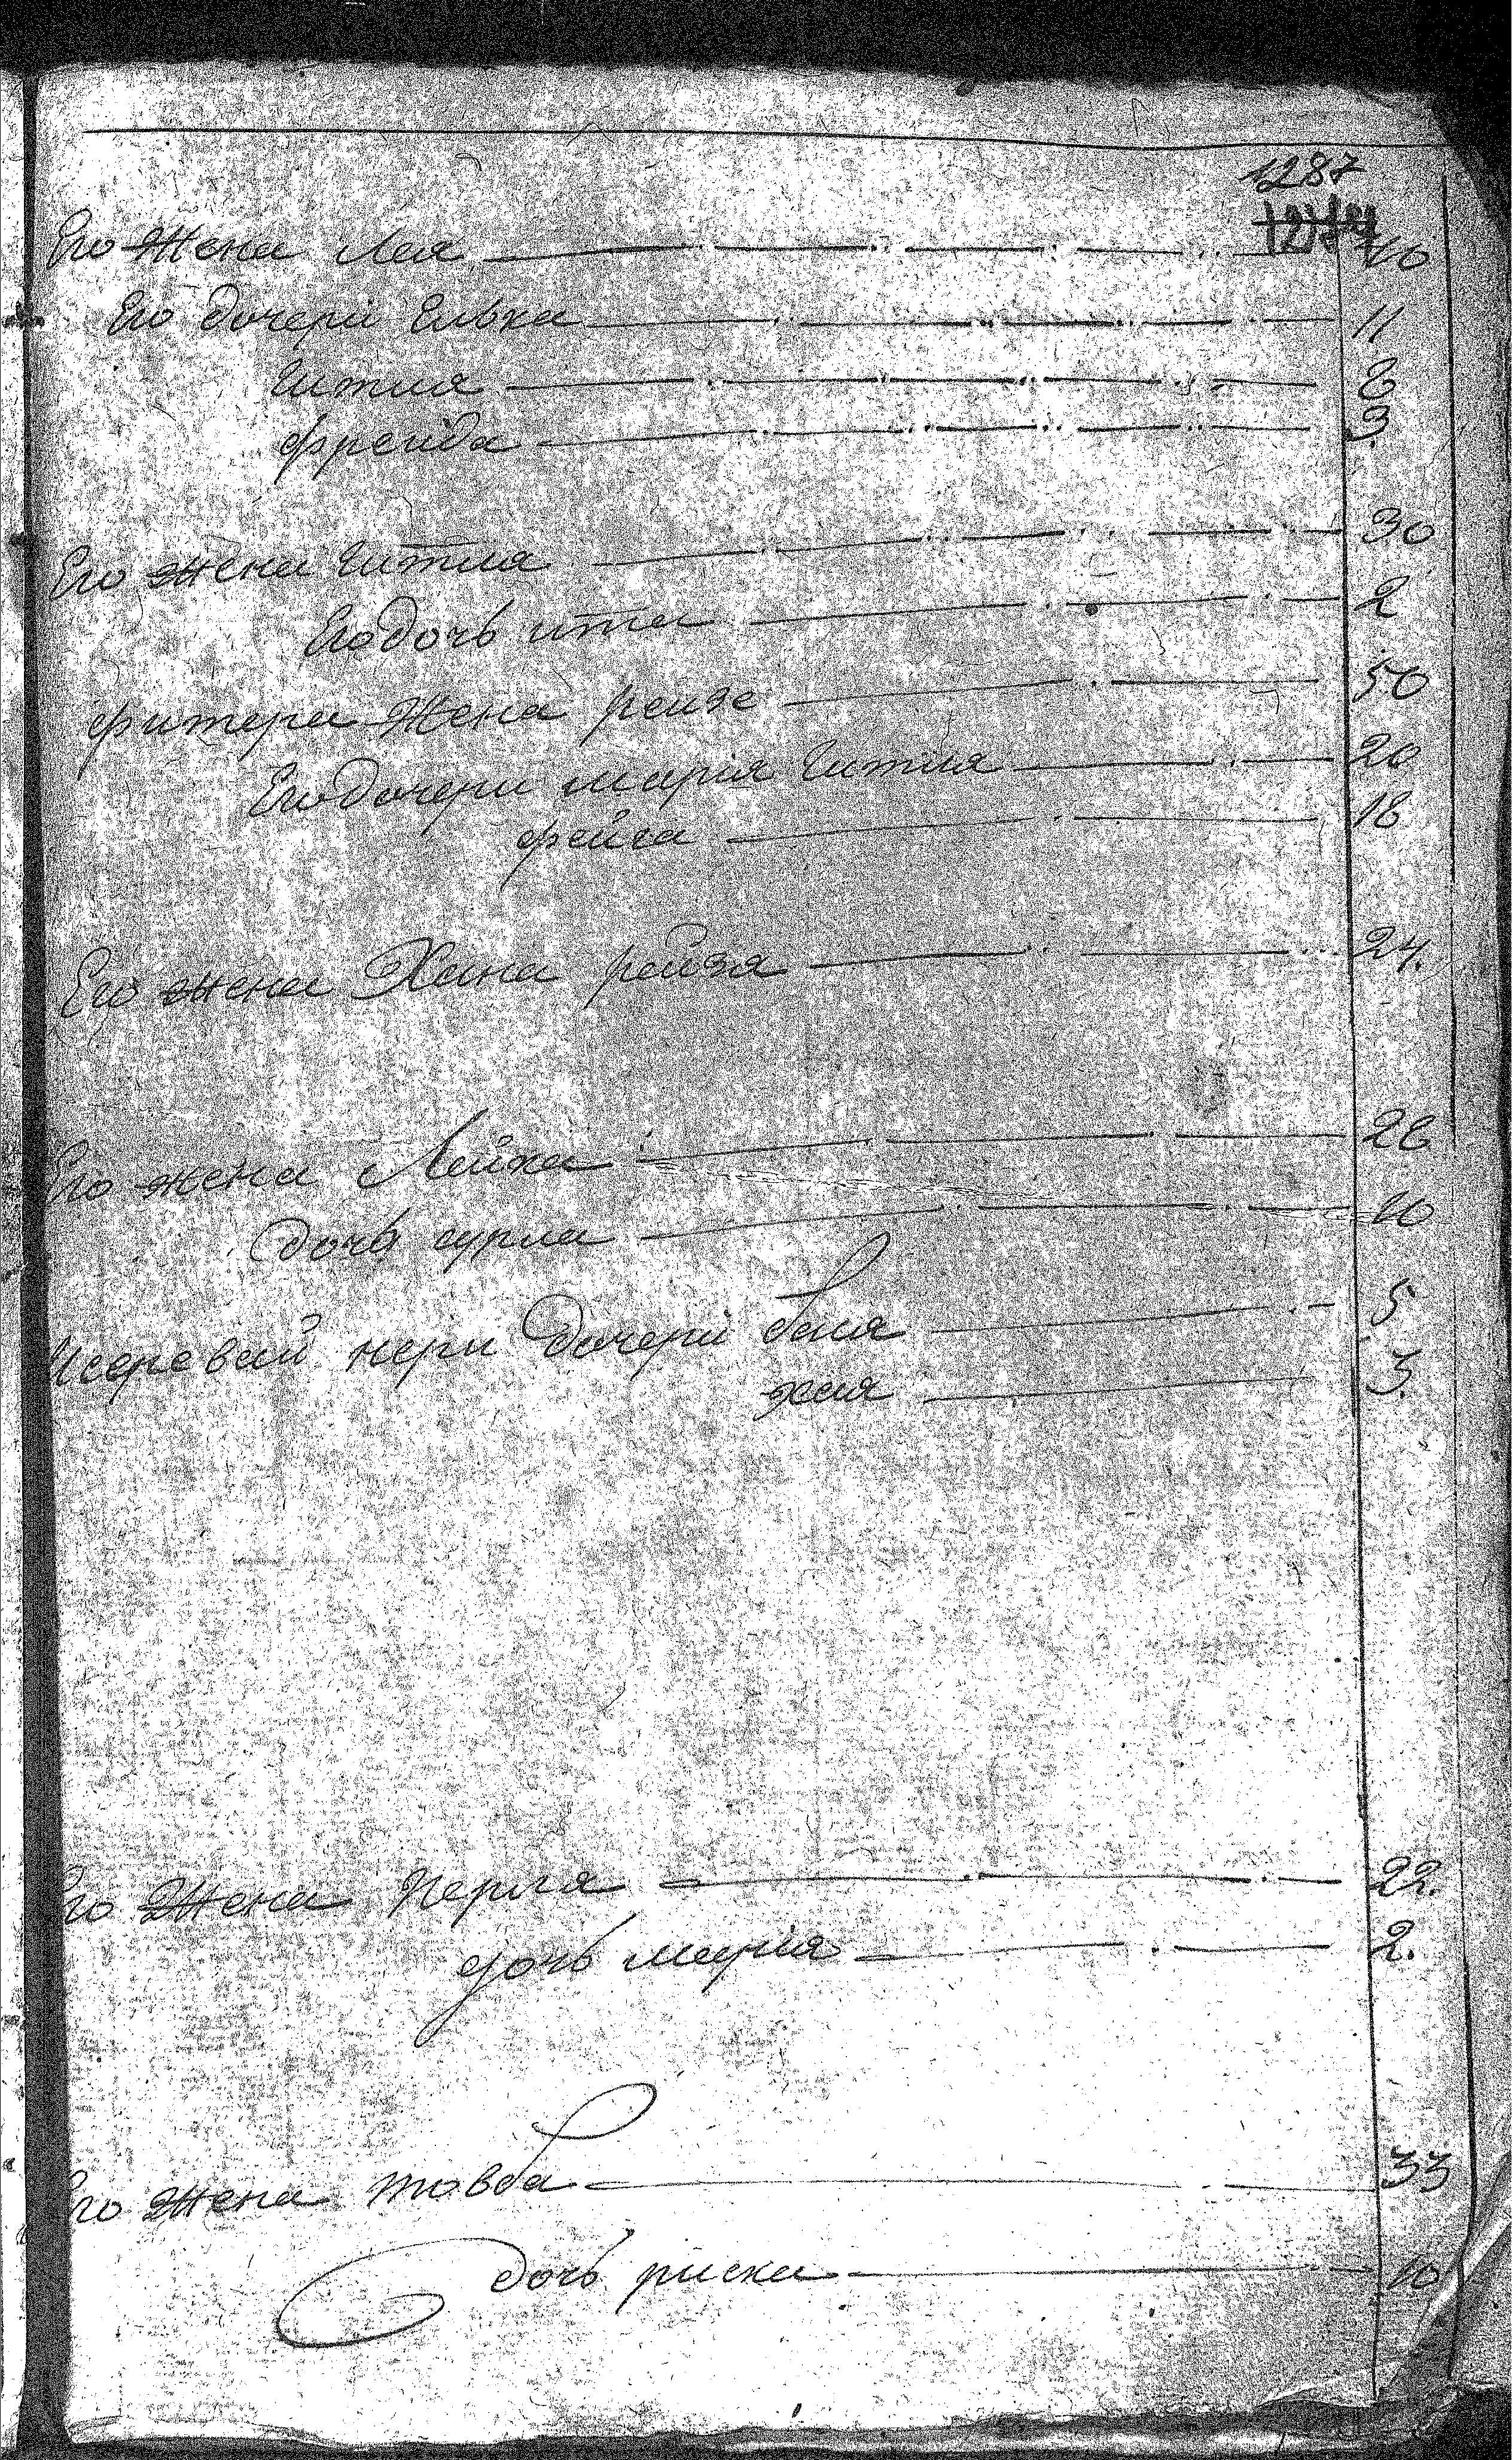 1287
1274
Его жена Лея 40
Его дочери Елька 11
Гитля 8
Фрейда 3.
Его жена Гитля 30
Его дочь ита 2
жена рейзе 50
Его дочери марія Гитля 20
фейга 18
Его жена Хана рейзя 24.
Его жена Лейка 28
дочь сурла 10
дочери бася 5
хая 3.
Его жена Перля 22.
дочь марія 2.
Его жена товба 33
дочь риска 10